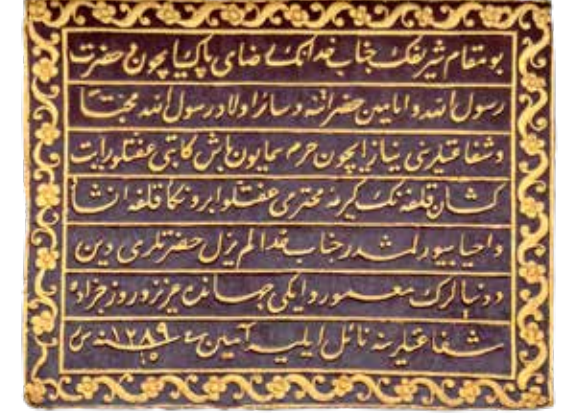 بو مقام شريفك جناب خدانك رضاى پاكى ايچون و حضرت
رسول الله و امامين حضراتنه و سائر اولاد رسول الله محبتا
و شفاعتلرينى نيازا ايچون حرم همايون باش كاتبى عفتلو رابت
كشان قلفه نك كريمه محترمى عفتلو ابرونكا قلفه انشا
و احيا بيورلمشدر جناب خدا لم يزل حضرتلرى دين
و دنيالرك معمور و ايكى جهانده عزيز و روز جزاده
شفاعتلرينه نائل ايليه آمين سنه ١٢٨٩